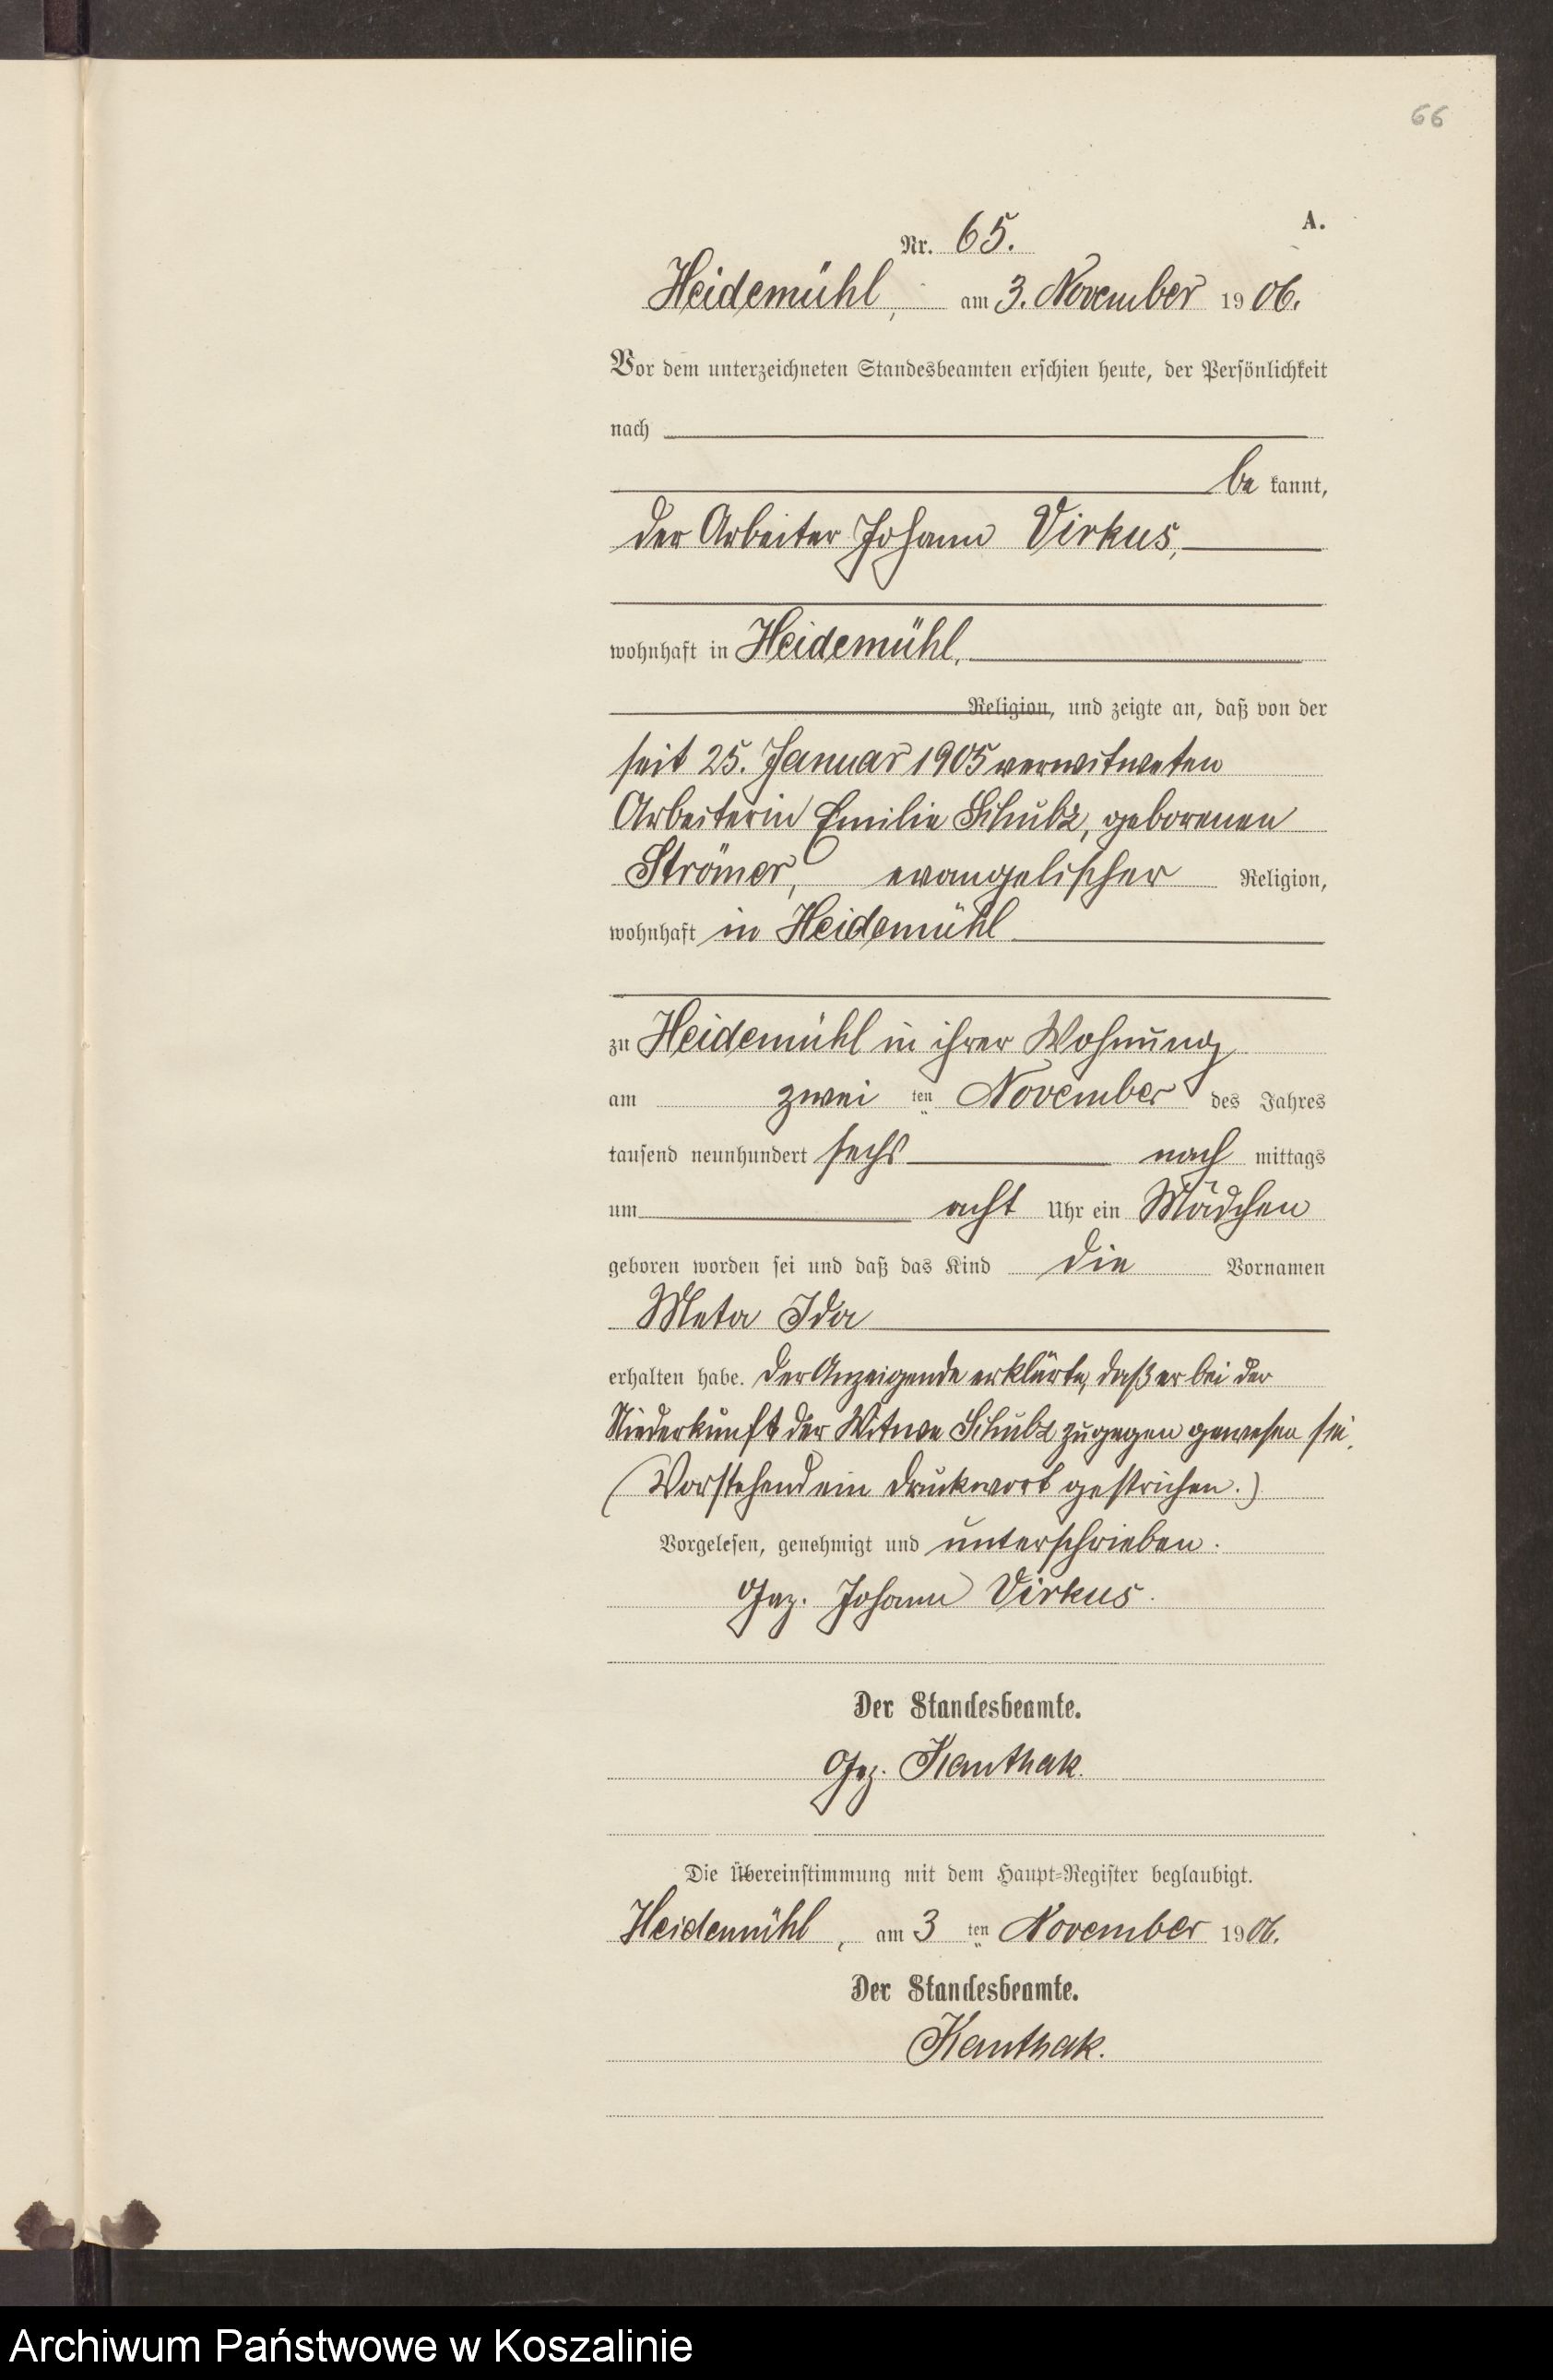 66
A.
Nr. 65.
Heidemühl, am 3. November 1906.
Vor dem unterzeichneten Standesbeamten erschien heute, der Persönlichkeit
nach
be kannt,
der Arbeiter Johann Virkus,
wohnhaft in Heidemühl,
Religion, und zeigte an, daß von der
seit 25. Januar 1905 verwitweten
Arbeiterin Emilie Schulz, geborenen
Strömer, evangelischer Religion,
wohnhaft in Heidemühl
zu Heidemühl in ihrer Wohnung
am zwei ten November des Jahres
tausend neunhundert sechs nach mittags
um acht Uhr ein Mädchen
geboren worden sei und daß das Kind die Vornamen
Meta Ida
erhalten habe. Der Anzeigende erklärte, daß er bei der
Niederkunft der Witwe Schulz zugegen gewesen sei.
(Vorstehend ein Druckwort gestrichen.)
Vorgelesen, genehmigt und unterschrieben.
Gez. Johann Virkus.
Der Standesbeamte.
Gez. Kauthak.
Die Übereinstimmung mit dem Haupt-Register beglaubigt.
Heidemühl, am 3 ten November 1906.
Der Standesbeamte.
Kauthak.
Archiwum Państwowe w Koszalinie